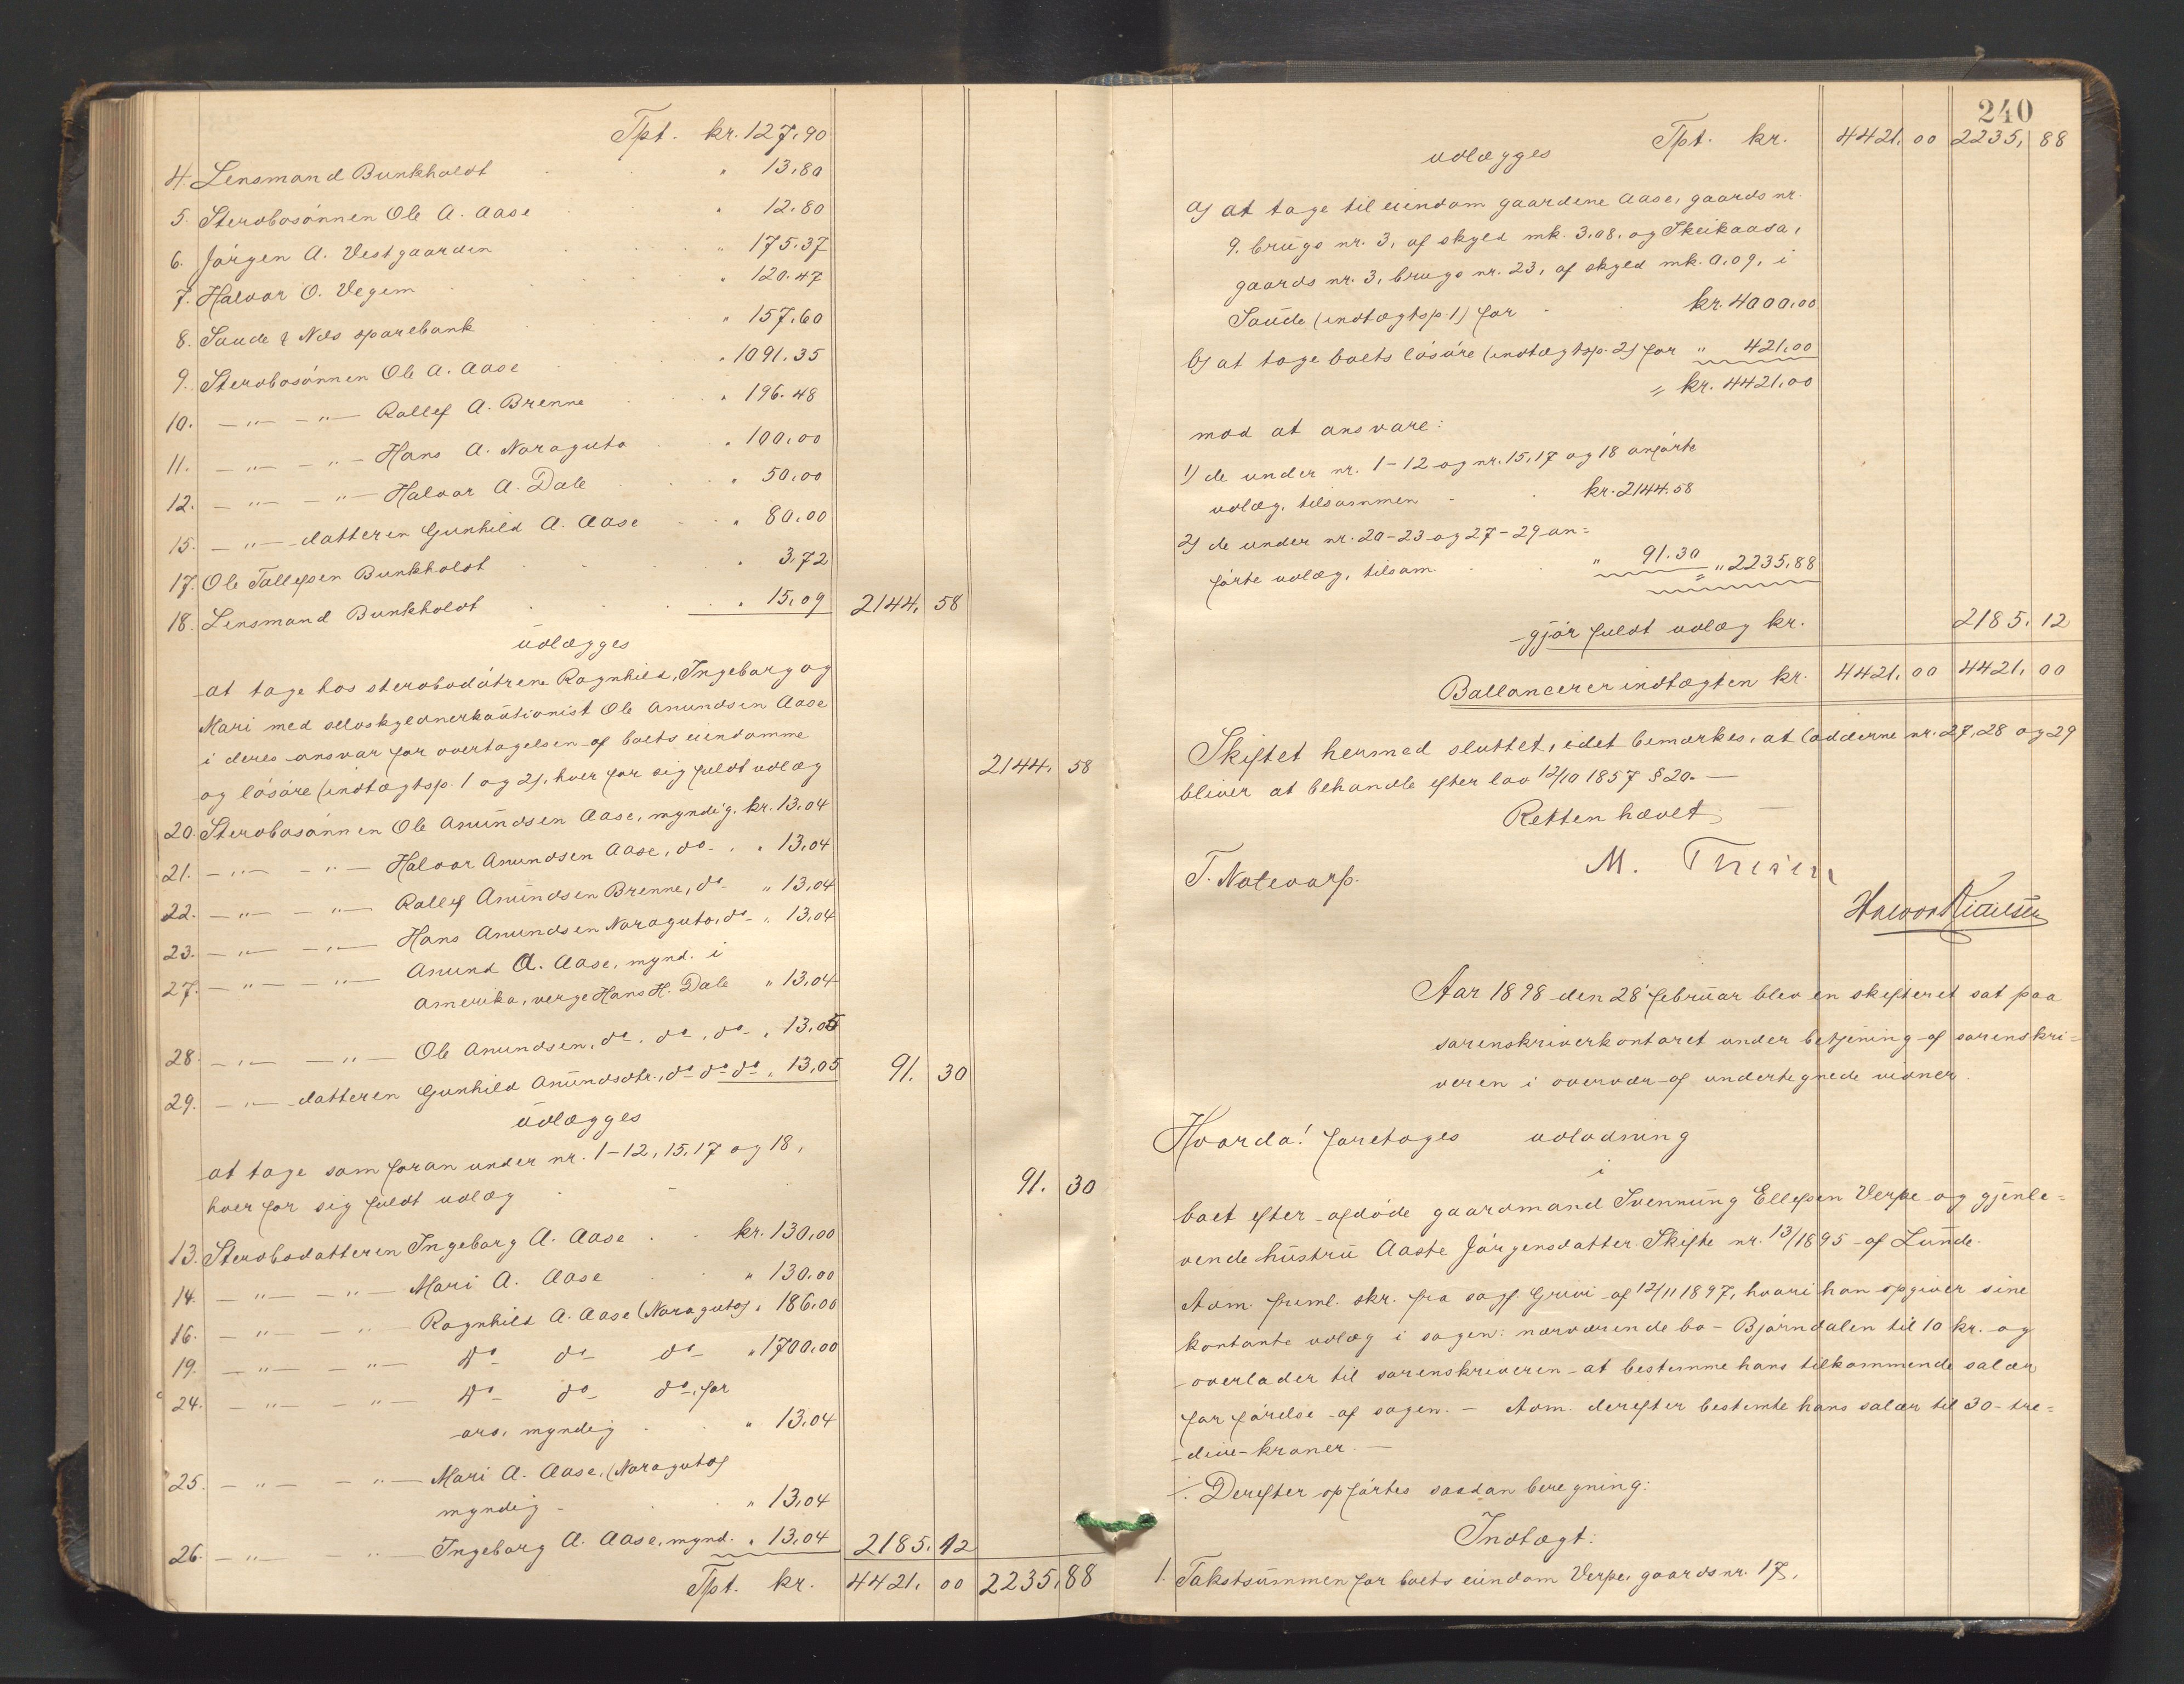 Tpt. kr. 127.90
4. Lensmand Bunkholdt " 13.80
5. Sterobosønnen Ole A. Aase " 12.80
6. Jørgen A. Vestgaarden " 175.37
7. Halvor O. Vegem " 120.47
8. Saude & Nes sparebank " 157.60
9. Stervbosønnen Ole A. Aase " 1091.35
10. —"— —"— Rollef A. Brenne " 196.48
11. —"— —"— Hans A. Noraguta " 100.00
12. —"— —"— Halvor A. Dale " 50.00
15. —"— datteren Gunhild A. Aase " 80.00
17. Ole Tollefsen Bunkholdt " 3.72
18. Lensmand Bunkholdt " 15.09 2144. 58
udlægges
at tage hos stervbodøtrene Ragnhild, Ingeborg og
Mari med selvskyldnerkautionist Ole Anundsen Aase
i deres ansvar for overtagelsen af boets eiendomme
og løsøre (indtægtsp. 1 og 2), hver for sig fuldt udlæg 2144. 58
20. Stervbosønnen Ole Anundsen Aase, myndig, kr. 13.04
21. —"— —"— Halvor Anundsen Aase, do " 13.04
22. —"— —"— Rollef Anundsen Brenne, do " 13.04
23. —"— —"— Hans Anundsen Noraguta, do " 13.04
27. —"— —"— Anund A. Aase, mynd. i
Amerika, verge Hans H. Dale " 13.04
28. —"— —"— Ole Anundsen, do, do, do " 13.05
29. —"— datteren Gunhild Anundsdtr., do do do " 13.05 91. 30
Udlægges
at tage som foran under nr. 1-12, 15, 17 og 18,
hver for sig fuldt udlæg 91. 30
13. Stervbodatteren Ingeborg A. Aase kr. 130.00
14. —"— —"— Mari A. Aase " 130.00
16. —"— —"— Ragnhild A. Aase (Noraguta) " 186.00
19. —"— —"— Do do do " 1700.00
24. —"— —"— Do do do, for
arv, myndig " 13.04
25. —"— —"— Mari A. Aase, (Noraguta)
myndig " 13.04
26. —"— —"— Ingeborg A. Aase, mynd. " 13.04 2185. 12
Tpt. kr. 4421. 00 2235. 88
240
Tpt. kr. 4421. 00 2235, 88
udlægges
a) at tage til eiendom gaardene Aase, gaards nr.
9, brugs nr. 3, af skyld mk. 3.08, og Skeikaasa,
gaards nr. 3, brugs nr. 23, af skyld mk. 0.09, i
Saude (indtægtsp. 1) for kr. 4000.00
b) at tage boets løsøre (indtægtsp. 2) for " 421.00
= kr. 4421.00
mod at ansvare:
1) de under nr. 1-12 og nr. 15, 17 og 18 anførte
udlæg, tilsammen kr. 2144.58
2) de under nr. 20-23 og 27-29 an=
førte udlæg, tilsam. " 91.30 = " 2235.88
gjør fuldt udlæg kr. 2185. 12
Ballancerer indtægten kr. 4421. 00 4421. 00
Skiftet hermed sluttet, idet bemærkes, at lodderne nr. 27, 28 og 29
bliver at behandle efter lov 12/10 1857 § 20. —
Retten hævet
T. Notevarp. M.
Halvor Kittilsen
Aar 1898 den 28' februar blev en skifteret sat paa
sorenskriverkontoret under betjening af sorenskri=
veren i overvær af undertegnede vidner.
Hvorda! foretoges udlodning
i
boet efter afdøde gaardmand Svennung Ellefsen Verpe og gjenle=
vende hustru Aaste Jørgensdatter. Skifte nr. 13/1895 af Lunde.
Adm. freml. skr. fra sagf. Grivi af 12/11 1897, hvori han opgiver sine
kontante udlæg i sagen: nærværende bo - Bjørndalen til 10 kr. og
overlader til sorenskriveren at bestemme hans tilkommende salær
for førelse af sagen. — Adm. derefter bestemte hans salær til 30 - tre=
dive - kroner. —
∴ Derefter opførtes saadan beregning:
Indtægt:
1. Takstsummen for boets eiendom Verpe, gaards nr. 17,